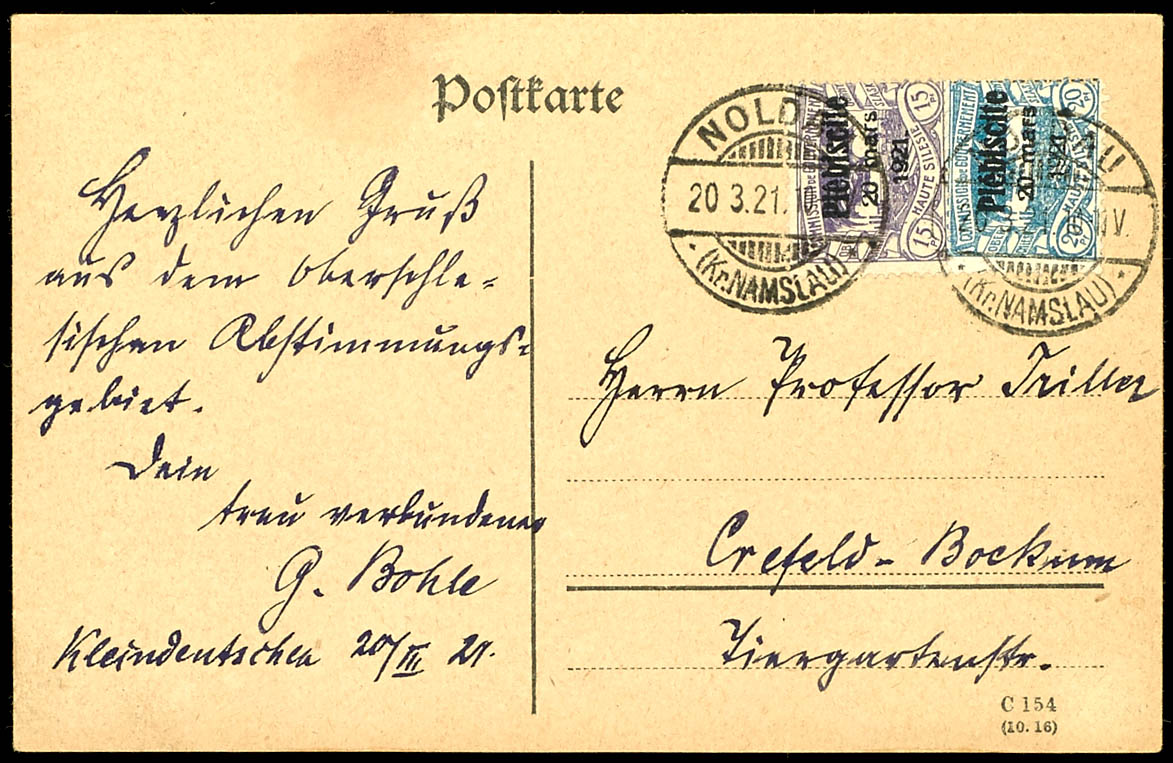 Postkarte
NOLDAU
20 3.21.
(Kr. NAMSLAU)
Plébiscite
20 mars
1921.
COMMISSION DE GOUVERNEMENT
HAUTE SILESIE
15
15
Plébiscite
20 mars
1921.
COMMISSION DE GOUVERNEMENT
HAUTE SILESIE
20
20
(Kr. NAMSLAU)
Herzlichen Gruß
aus dem oberschle=
sischen Abstimmungs=
gebiet.
Dein
treu verbundener
G. Bohle
Kleindeutschen 20/III 21.
Herrn Professor Triller
Crefeld-Bockum
Tiergartenstr.
C 154
(10. 16)